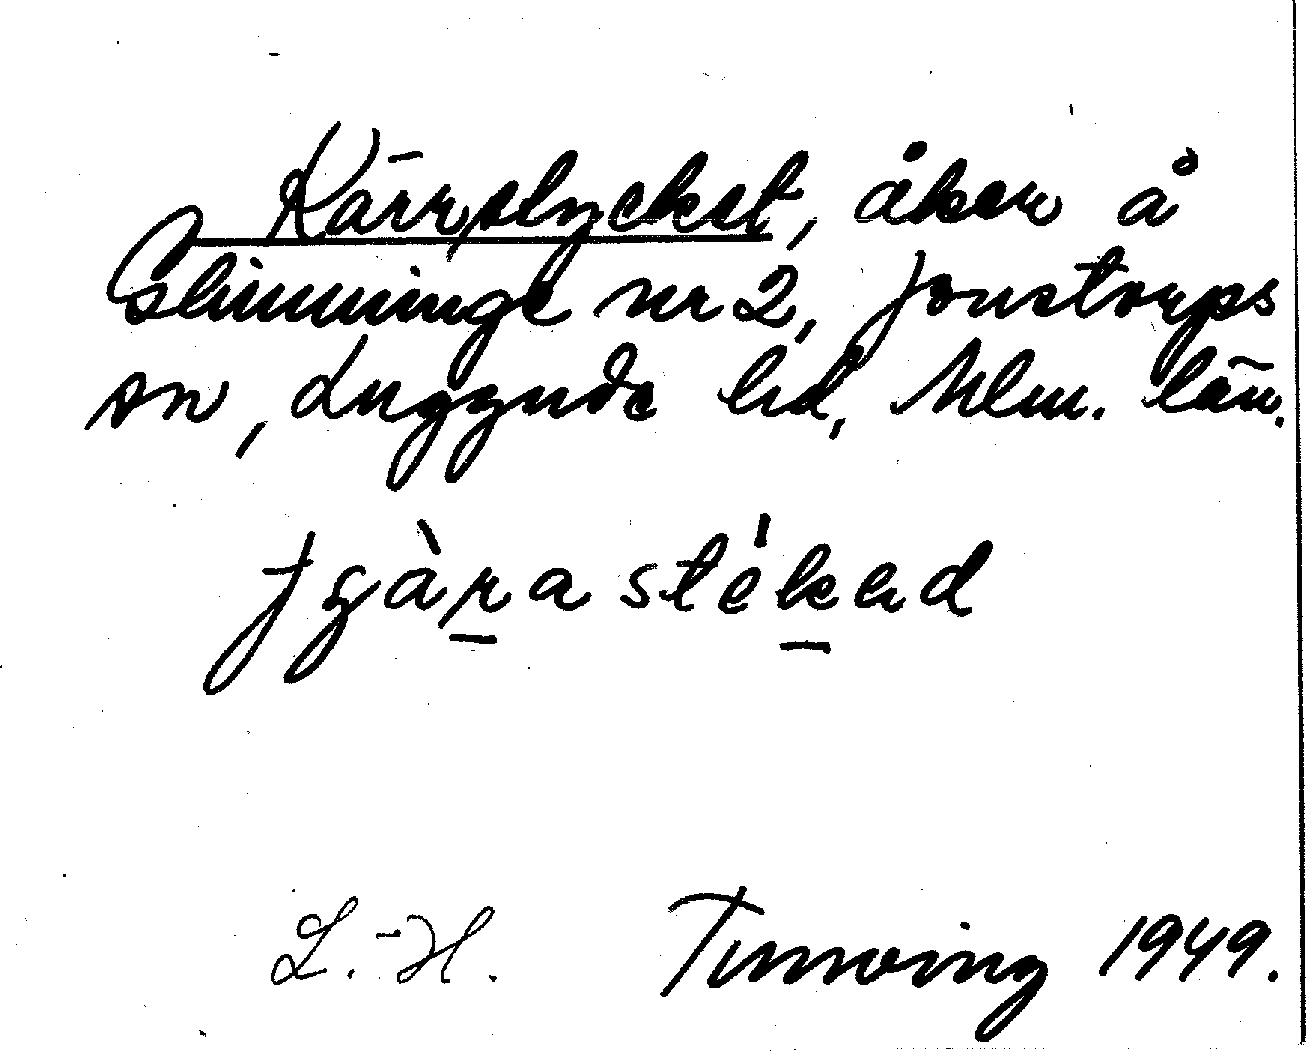 Kärrstycket, åker å
Slimminge nr 2, Jonstorps
sn, Luggude hd, Mlm. län.
tjàra stéked
L.-H. Tunving 1949.